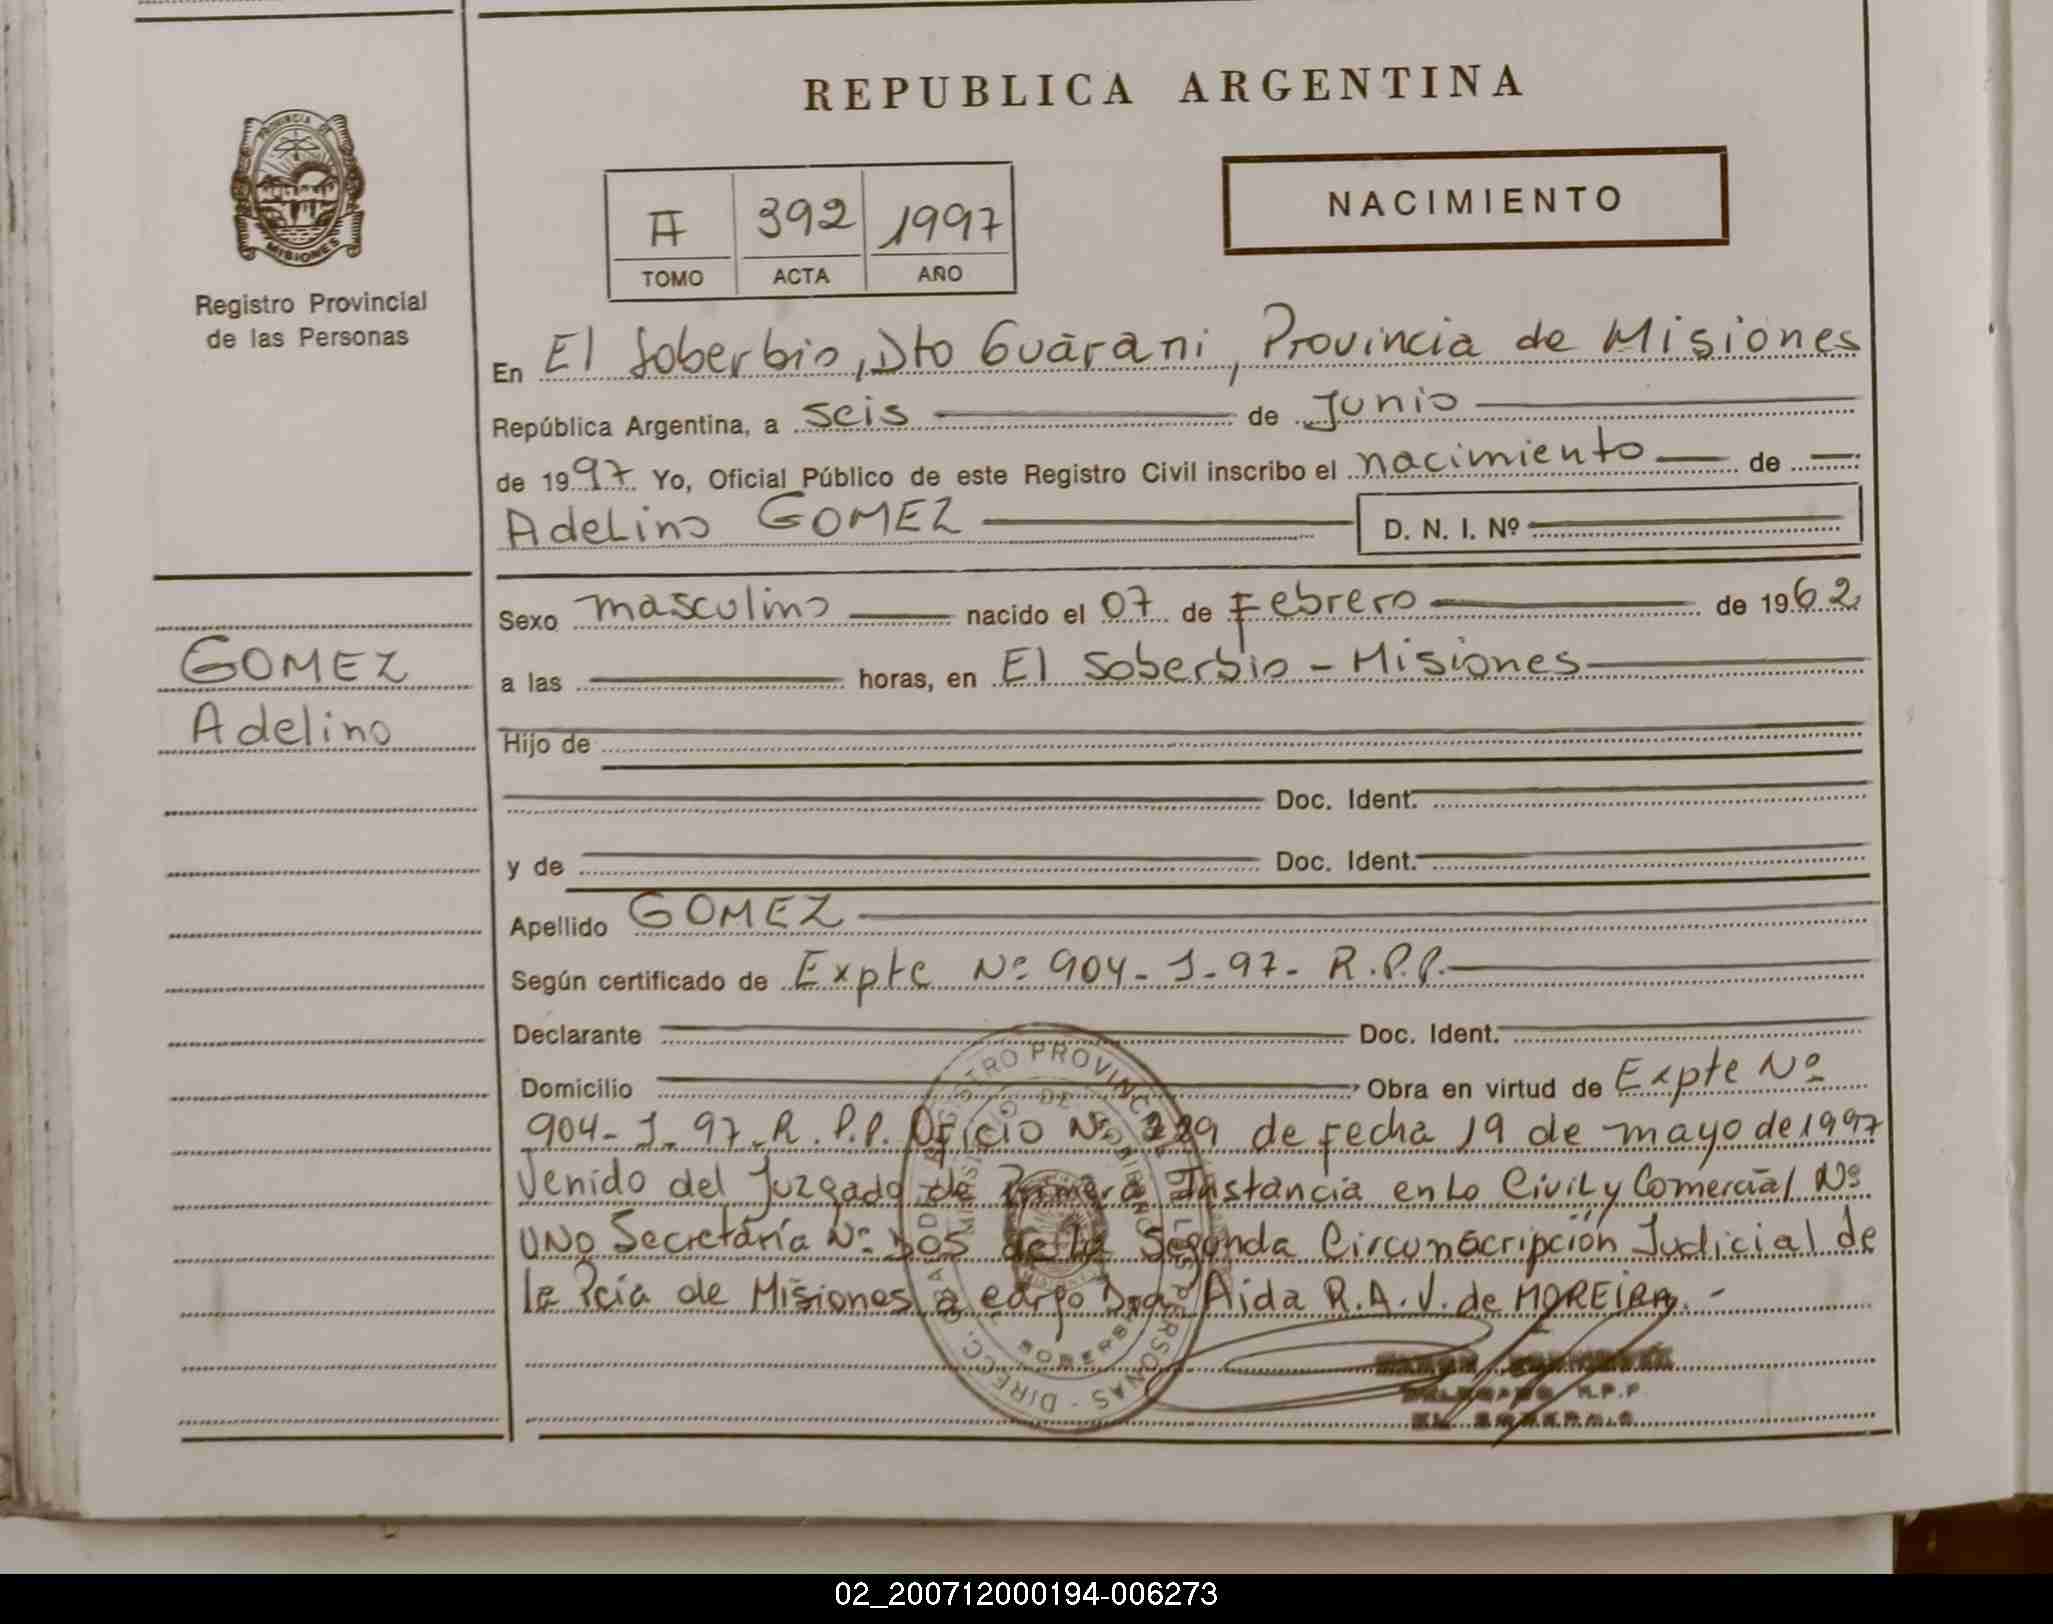 REPUBLICA ARGENTINA
PROVINCIA DE
MISIONES
Registro Provincial
de las Personas
392 1997
TOMO ACTA AÑO
NACIMIENTO
En El Soberbio, Dto Guarani, Provincia de Misiones
República Argentina, a seis de Junio
de 1997 Yo, Oficial Público de este Registro Civil inscribo el nacimiento de
Adelino GOMEZ D. N. I. Nº
Sexo masculino nacido el 07 de Febrero de 1962
GOMEZ
a las horas, en El Soberbio - Misiones
Adelino
Hijo de
Doc. Ident.
y de Doc. Ident.
Apellido GOMEZ
Según certificado de Expte Nº 904-J-97- R.P.P.
Declarante Doc. Ident.
Domicilio Obra en virtud de Expte Nº
904-J-97-R.P.P. Oficio Nº de fecha 19 de mayo de 1997
Venido del Juzgado de Primera Instancia en Lo Civil y Comercial Nº
UNO Secretaría Nº DOS de la Segunda Circunscripción Judicial de
la Pcia de Misiones a cargo Dra Aida R.A.V. de MOREIRA.-
DELEGADO R.P.P.
EL SOBERBIO
02_200712000194-006273